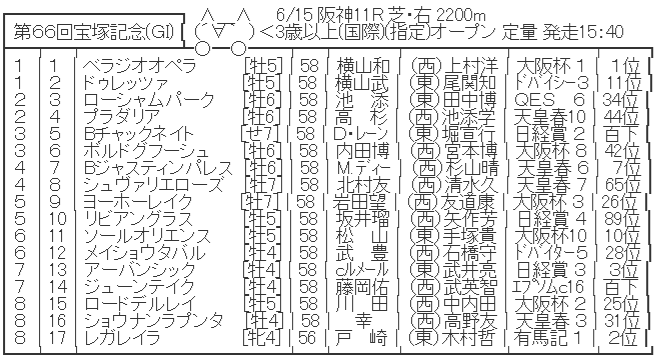 ∧__∧ 6/15 阪神11R 芝・右 2200m
第66回宝塚記念(GI) ( ´∀｀ ) <3歳以上(国際)(指定)オープン 定量 発走15:40
1│1│ベラジオオペラ [牡5]│58│横山和│(西)上村洋│大阪杯 1│1位
1│2│ドゥレッツァ [牡5]│58│横山武│(東)尾関知│ドバイシー3│11位
2│3│ローシャムパーク [牡6]│58│池 添│(東)田中博│QES 6│34位
2│4│プラダリア [牡6]│58│高 杉│(西)池添学│天皇春10│44位
3│5│Bチャックネイト [せ7]│58│D・レーン│(東)堀宣行│日経賞 2│百下
3│6│ボルドグフーシュ [牡6]│58│内田博│(西)宮本博│大阪杯 8│42位
4│7│Bジャスティンパレス [牡6]│58│M.ディー│(西)杉山晴│天皇春 6│7位
4│8│シュヴァリエローズ [牡7]│58│北村友│(西)清水久│天皇春 7│65位
5│9│ヨーホーレイク [牡7]│58│岩田望│(西)友道康│大阪杯 3│26位
5│10│リビアングラス [牡5]│58│坂井瑠│(西)矢作芳│日経賞 4│89位
6│11│ソールオリエンス [牡5]│58│松 山│(東)手塚貴│大阪杯10│10位
6│12│メイショウタバル [牡4]│58│武 豊│(西)石橋守│ドバイター5│28位
7│13│アーバンシック [牡4]│58│cルメール│(東)武井亮│日経賞 3│3位
7│14│ジューンテイク [牡4]│58│藤岡佑│(西)武英智│エプソムc16│百下
8│15│ロードデルレイ [牡5]│58│川 田│(西)中内田│大阪杯 2│25位
8│16│ショウナンラプンタ [牡4]│58│幸│(西)高野友│天皇春 3│31位
8│17│レガレイラ [牝4]│56│戸 崎│(東)木村哲│有馬記 1│2位